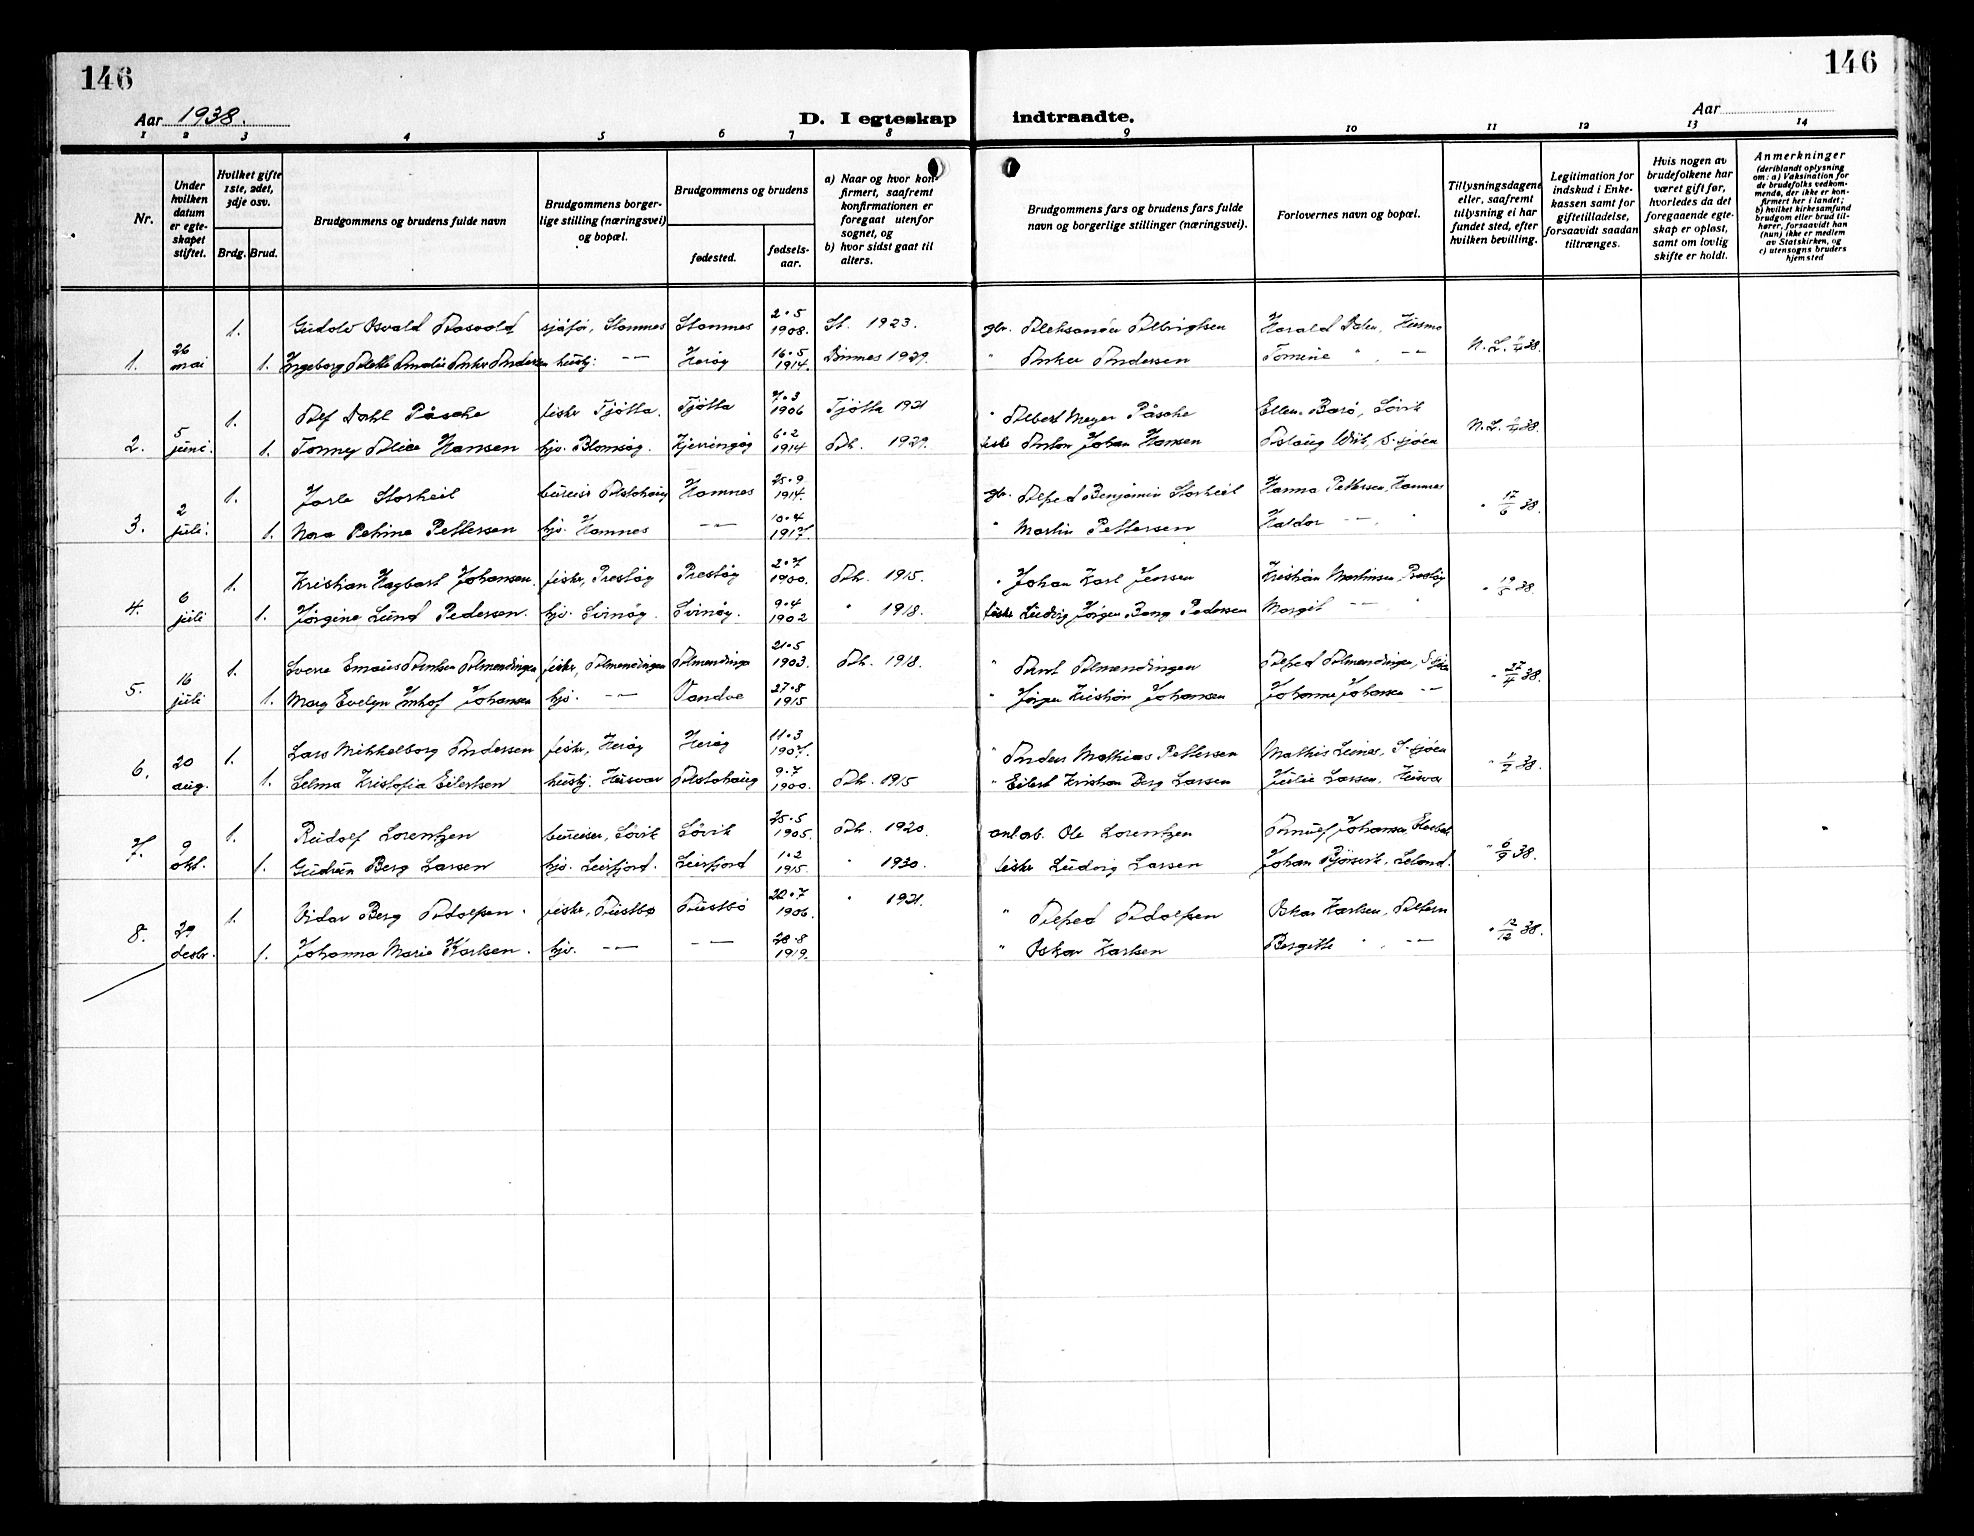 146
146
Aar 1938.
D. I egteskap indtraadte.
Aar
1 2 3 4 5 6 7 8 9 10 11 12 13 14
Nr.
Under hvilken datum er egteskapet stiftet.
Hvilket gifte 1ste, 2det, 3dje osv.
Brdg. Brud.
Brudgommens og brudens fulde navn
Brudgommens borgerlige stilling (næringsvei) og bopæl.
Brudgommens og brudens
fødested.
fødselsaar.
a) Naar og hvor konfirmert, saafremt konfirmationen er foregaat utenfor sognet, og
b) hvor sidst gaat til alters.
Brudgommens fars og brudens fars fulde navn og borgerlige stillinger (næringsvei).
Forlovernes navn og bopæl.
Tillysningsdagene eller, saafremt tillysning ei har fundet sted, efter hvilken bevilling.
Legitimation for indskud i Enkekassen samt for giftetilladelse, forsaavidt saadan tiltrænges.
Hvis nogen av brudefolkene har været gift før, hvorledes da det foregaaende egteskap er opløst, samt om lovlig skifte er holdt.
Anmerkninger
(deriblandt oplysning om: a) Vaksination for de brudefolks vedkommende, der ikke er konfirmert her i landet; b) hvilket kirkesamfund brudgom eller brud tilhører, forsaavidt han (hun) ikke er medlem av Statskirken, og c) utensogns bruders hjemsted
1. Gudolv Osvald Stamnes 2.5 1908. St. 1923. gbr. Aleksander Albrigtsen Harald Dalen,
1. 26 mai 1. Ingeborg Amalie Anker Andersen hustj. —"— Herøy 16.5 1914. Dønnes 1929. " Anker Andersen Tomine " , —"— N.L. 38.
1. Alf Dahl Påsche fisker Tjøtta. Tjøtta 7.3 1906 Tjøtta 1921 " Albert Meyer Påsche Løvik
2. 5 juni. 1. Tonny Alice Hansen hjv. Blomsøy. Kjerringøy 6.2 1914 Alh. 1929. fisker Anton Johan Hansen Aslaug S-sjøen N.L. 38.
1. Jarle Storheil bureiser Alstahaug Hamnes 25.9 1914. gbr. Alfred Benjamin Storheil Hanna Pettersen, Hamnes
3. 2 juli. 1. Nora Petrine Pettersen hjv. Hamnes —"— 10.4 1917. " Martin Pettersen Haldor —"— " " 17/6 38.
1. Kristian Hagbart Johansen. fisker, Prestøy Prestøy 2.7 1900. Alh. 1915. " Johan Karl Jenssen Kristian Martinsen, Prestøy
4. 6 juli 1. Jørgine Lund Pedersen. hjv. Svinøy. Svinøy. 9.4 1902 " 1918. fisker Ludvig Jørgen Berg Pedersen Margit —"— " " 19/5 38.
1. Sverre Emaus Arntsen Almendingen fisker, Almendingen Almendingen 21.5 1903. Alh. 1918. " Arnt Almendingen Alfred Almendingen,
5. 16 juli 1. Mary Evelyn Imhof Johansen hjv. —"— Vandve 27.8 1915 " Jørgen Kristian Johansen Johanne Johansen —"— " 27/4 38.
1. Lars Mikkelborg Andersen fisker, Herøy Herøy 11.3 1907. " Anders Mathias Pettersen Mathis Leines, S-sjøen
6. 20 aug. 1. Selma Kristofia Eilertsen hustj. Husvær Alstahaug 9.7 1900. Alh. 1915 " Eilert Kristian Berg Larssen Julie Larssen, Husvær " 38.
1. Rudolf Lorentzen bureiser, Løvik Løvik 25.5 1905. Alh. 1920. anl.arb. Ole Lorentzen Arnulf Johansen,
7. 9 okt. 1. Gudrun Berg Larsen hjv. Leirfjord. Leirfjord 1.2 1915. " 1930. fisker Ludvig Larssen Johan Bjørsvik, Leland. " 6/9 38.
1. Vidar Berg Adolfsen. fisker, Austbø Austbø 20.7 1906. " 1921. " Alfred Adolfsen Oskar Karlsen,
8. 29 desbr. 1. Johanna Marie Karlsen. hjv. —"— —"— 28.8 1919. " Oskar Karlsen Bergitte " , —"— " 12/12 38.